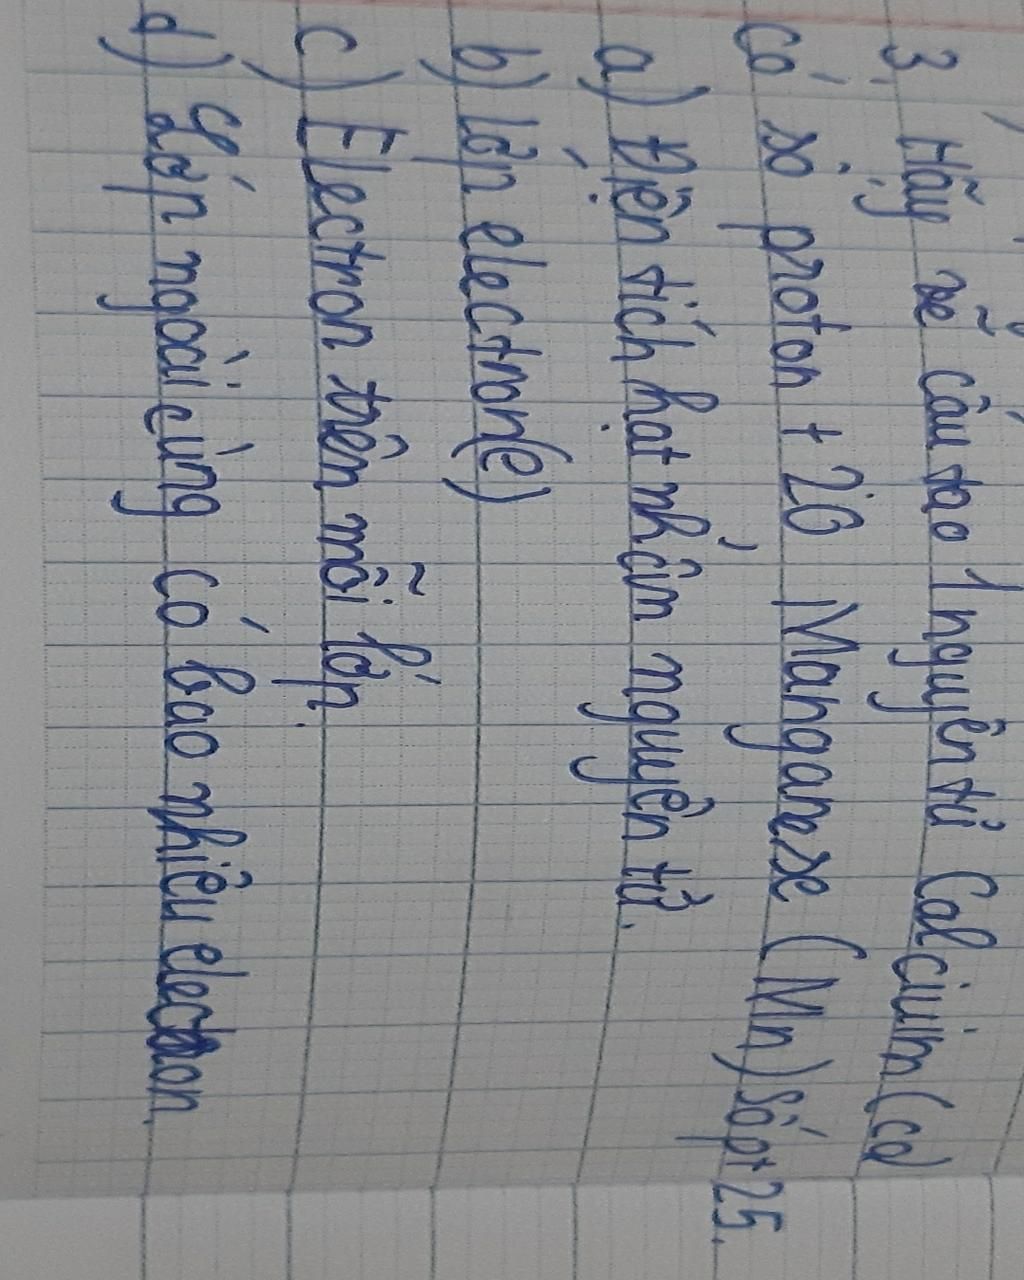 3. Hãy vẽ cấu tạo 1 nguyên tử Calcium (ca)
có số proton + 20 Manganese (Mn) số p+ 25.
a) Điện tích hạt nhân nguyên tử.
b) lớp electron(e)
c) Electron trên mỗi lớp.
d) Lớp ngoài cùng có bao nhiêu electron.